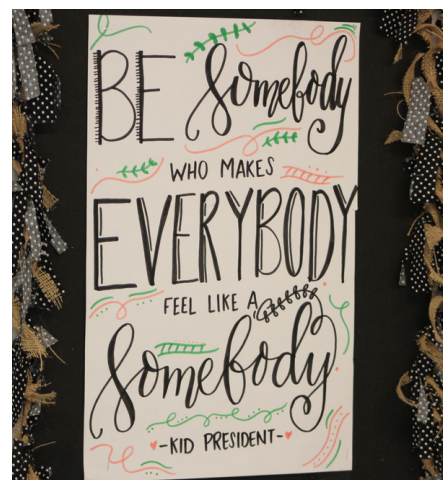 BE Somebody
WHO MAKES
EVERYBODY
FEEL LIKE A
Somebody
-KID PRESIDENT-